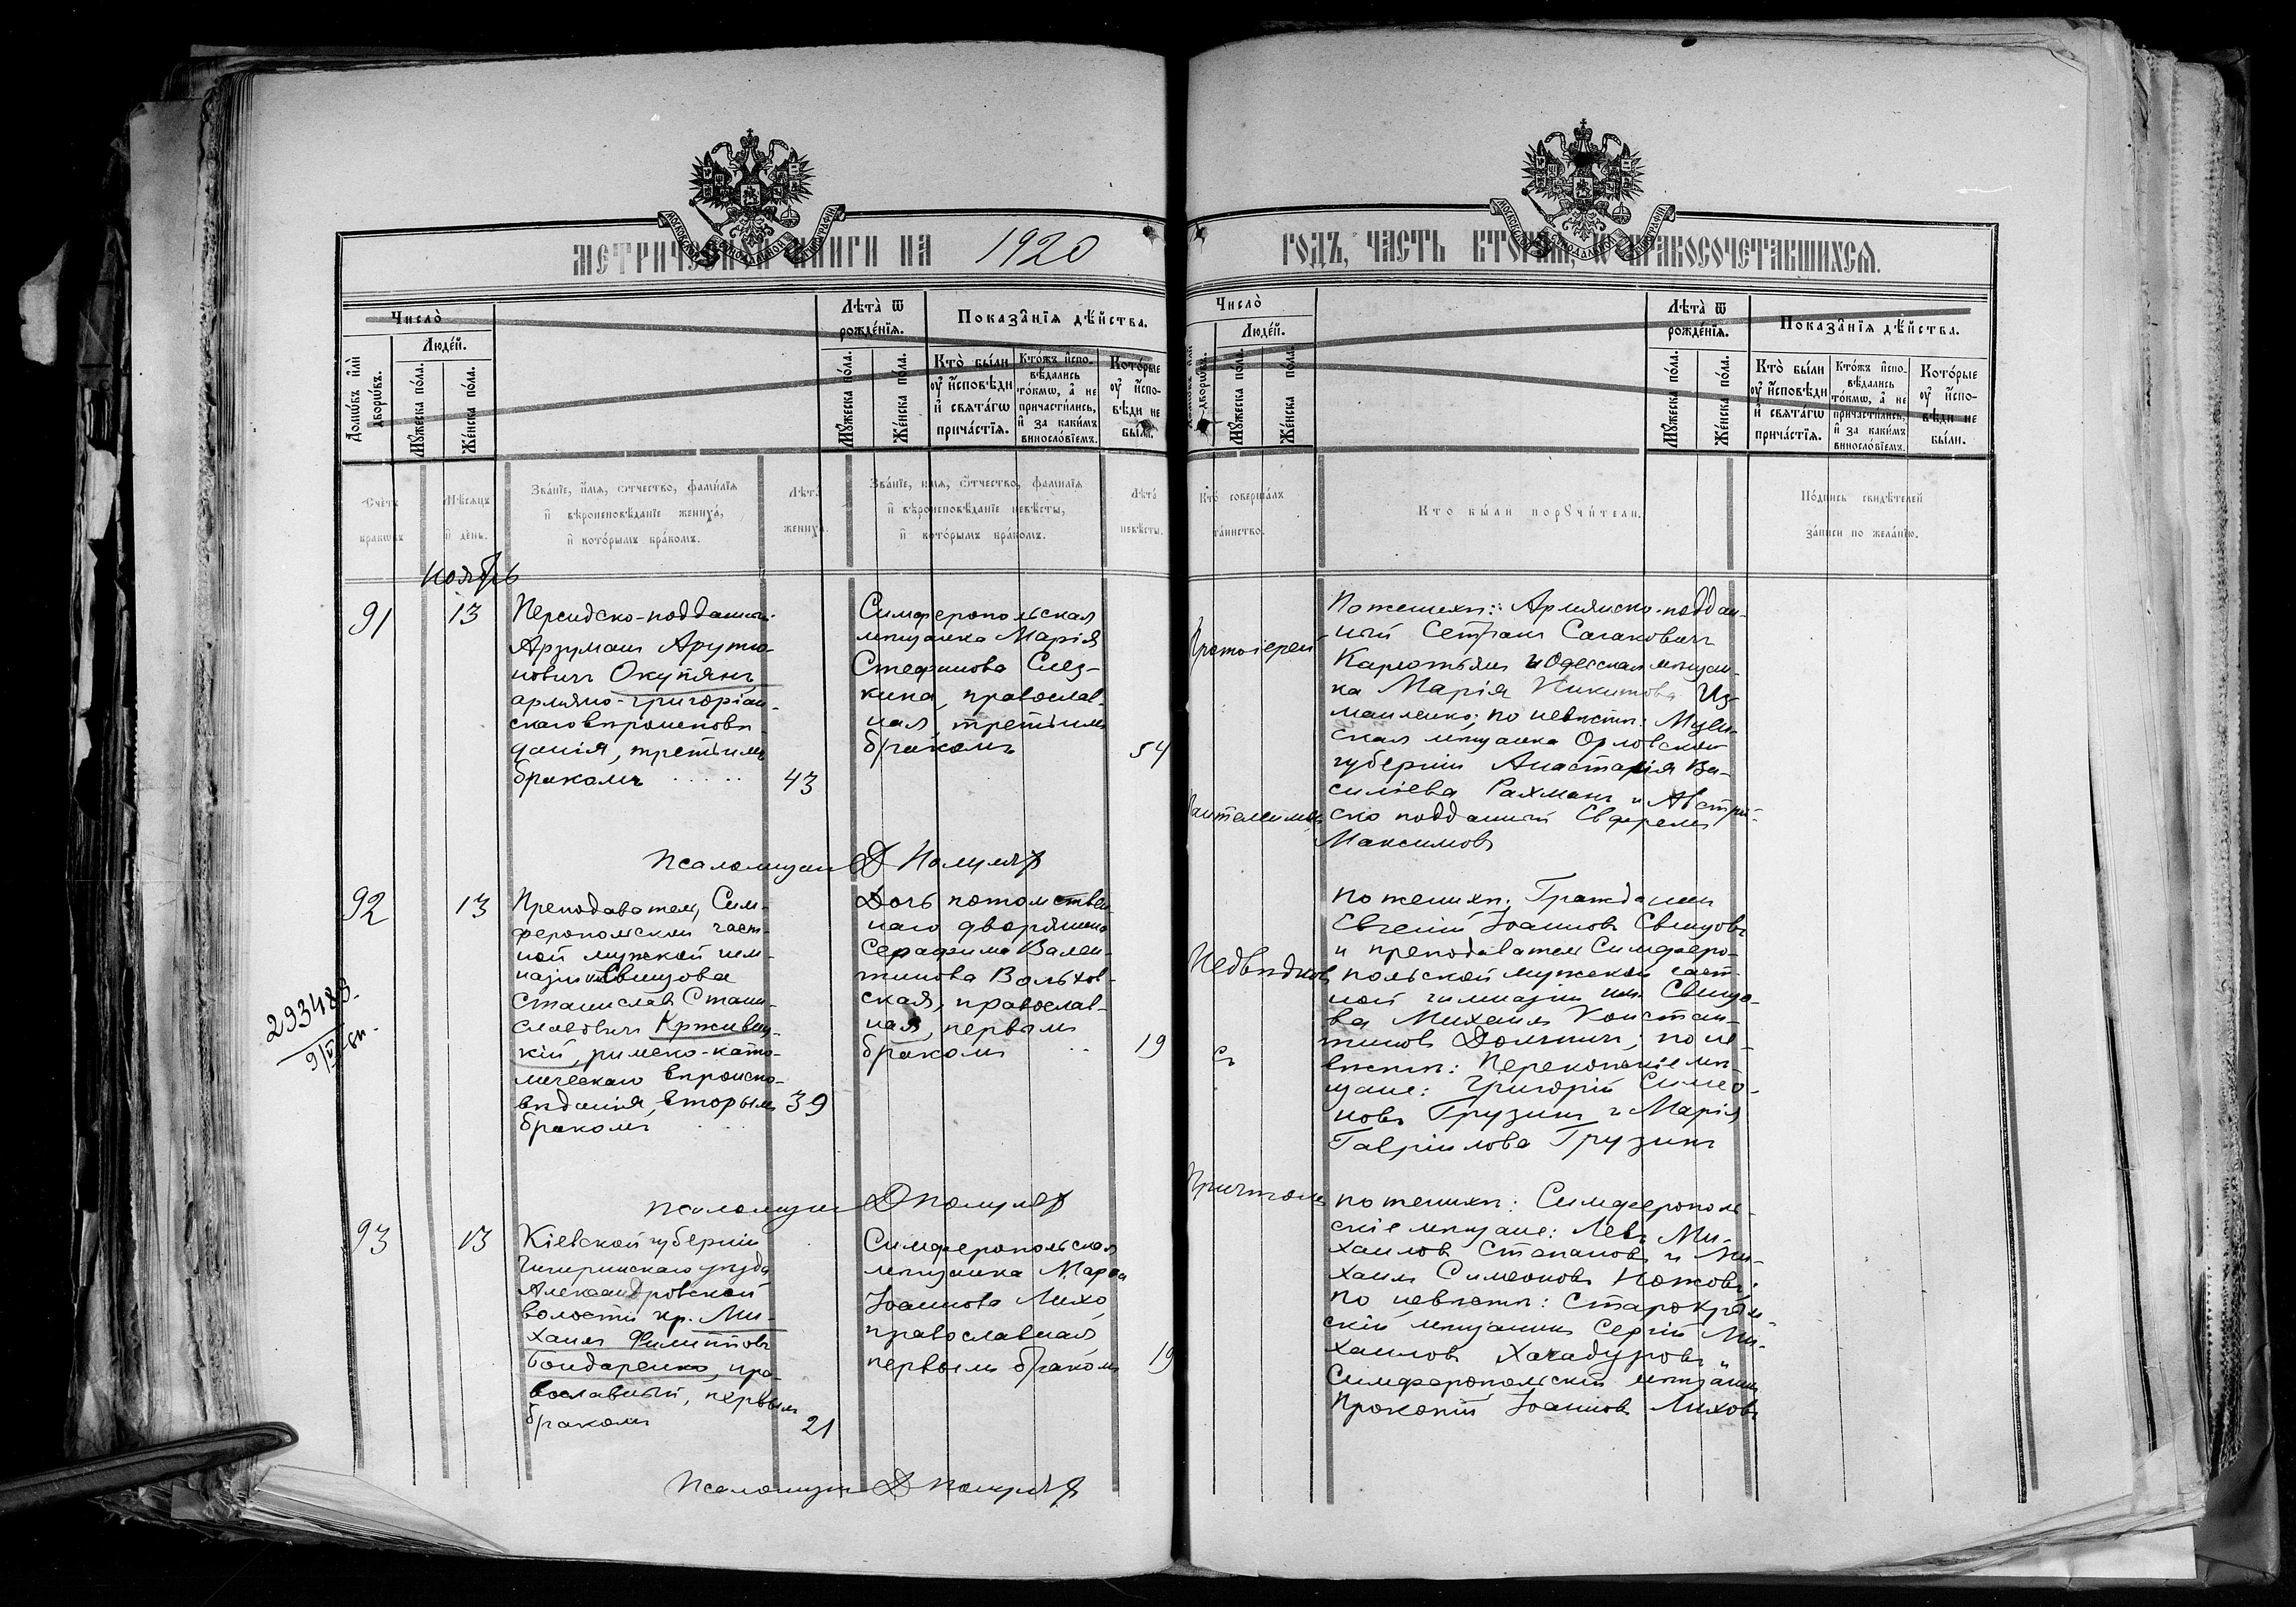 МЕТРИЧЕСКІѦ КНИГИ НА 1920
ГОДЪ, ЧАСТЬ ВТОРАѦ, Ѡ БРАКОСОЧЕТАВШИХСѦ.
Число̀
Людéй.
Домѡ́въ и҆лѝ дворѡ́въ.
Мꙋ́жеска по́ла.
Же́нска по́ла.
Лѣта̀ ѿ рожде́нїѧ.
Мꙋ́жеска по́ла.
Же́нска по́ла.
Показа̑нїѧ дѣ́йства.
Кто̀ бы́ли ᲂу҆ и҆сповѣди и҆ свѧта́гѡ прича́стїѧ.
Кто́жъ и҆спо-
вѣдались то́кмѡ, а҆ не причасти́лись, и҆ за каки́мъ винословїемъ.
Кото́рые ᲂу҆ и҆спо-
вѣди не бы́ли.
Счетъ браковъ
Мѣсѧцъ и҆ де́нь.
Зва́нїе, и҆́мѧ, ѻ҆тчество, фами́лїѧ и҆ вѣроисповѣданїе жениха̀, и҆ кото́рымъ бра́комъ.
Лѣта̀ жениха̀.
Зва́нїе, и҆́мѧ, ѻ҆тчество, фами́лїѧ и҆ вѣроисповѣданїе невѣ́сты, и҆ кото́рымъ бра́комъ.
Лѣта̀ невѣ́сты.
Кто̀ соверша́лъ та́инство.
Кто бы́ли порꙋчи́тели.
По́дпись свидѣ́телей за́писи по жела́нїю.
Ноябрь
91
13
Персидско-подданный
Арзуманъ Арутю-
новичъ Окупянъ
армяно-григоріан-
скаго вѣроисповѣ-
данія, третьимъ
бракомъ
43
Симферопольская
мѣщанка Марія
Стефанова Слез-
кина, православ-
ная, третьимъ
бракомъ
54
Протоіерей
По женихѣ: Армянско-поддан-
ный Сетракъ Саакович
и Одесская мѣщан-
ка Марія Никитова Из-
маиленко; по невѣстѣ:
ская мѣщанка Орловской
губерніи Анастасія Ва-
силіева Рахманъ и Австрій-
ско подданный Ефремъ
Максимовъ
Пантелеимонъ
Псаломщикъ Д
92
13
Преподаватель Сим-
феропольской част-
ной мужской гим-
назіи Свищова
Станиславъ Стани-
славовичъ Крживиц-
кій, римско-като-
лическаго вѣроиспо-
вѣданія, вторымъ
бракомъ
39
Дочь потомствен-
наго дворянина
Серафима Вален-
тинова Вольхов-
ская, православ-
ная, первымъ
бракомъ
19
Медвѣдковъ
съ
По женихѣ: Гражданин
Евгеній Іоанновъ Свищовъ
и преподаватель Симферо-
польской мужской част-
ной гимназіи им. Свищо-
ва Михаилъ Констан-
тиновъ; по не-
вѣстѣ: Перекопскіе мѣ-
щане: Григорій Симео-
новъ Грузинъ и Марія
Гавріилова Грузинъ
293483.
Псаломщикъ Д
Причтомъ
93
13
Кіевской губерніи
Чигиринскаго уѣзда
Александровской
волости кр. Ми-
хаилъ Филипповъ
Бондаренко, пра-
вославный, первымъ
бракомъ
21
Симферопольская
мѣщанка Марѳа
Іоаннова Лихо
православная
первымъ бракомъ
19
По женихѣ: Симферополь-
скіе мѣщане: Левъ Ми-
хаиловъ Степановъ и Ми-
хаилъ Симеоновъ Ножовъ;
по невѣстѣ: Старокрым-
скій мѣщанинъ Сергій Ми-
хаиловъ Хачадуровъ и
Симферопольскій мѣщанинъ
Прокопій Іоанновъ Лиховъ
Псаломщикъ Д